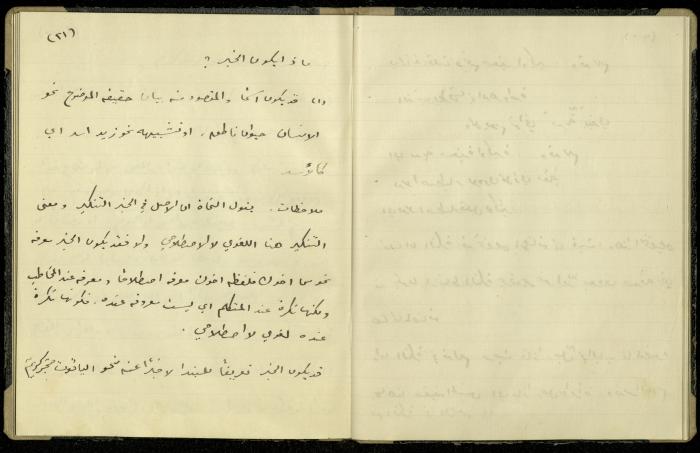 (٣١)
ماذا يكون الخبر ؟
وانه قد يكون اسمًا والمقصود منه بيان حقيقة الموضوع نحو
الانسان حيوان ناطق . او تشبيهه نحو زيد اسد اي
كالأسد
ملاحظات . يقول النحاة ان الاصل في الخبر التنكير ومعنى
التنكير هنا اللغوي لا الاصطلاحي ولا فقد يكون الخبر معرفة
نحو هذا اخوك فلفظه اخوك معرفة اصطلاحًا ومعرفة عند المخاطب
ولكنها نكرة عند المتكلم اي ليست معروفة عنده . فكونها نكرة
عنده لغوي لا اصطلاحي .
قد يكون الخبر تعريفًا للمبتدا لا خبرًا عنه نحو الياقوت حجر كريم